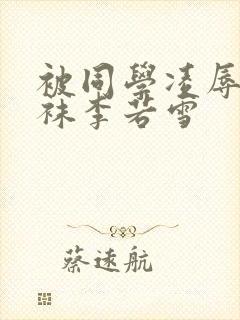 被同學凌辱
袜李若雪
蔡遠航